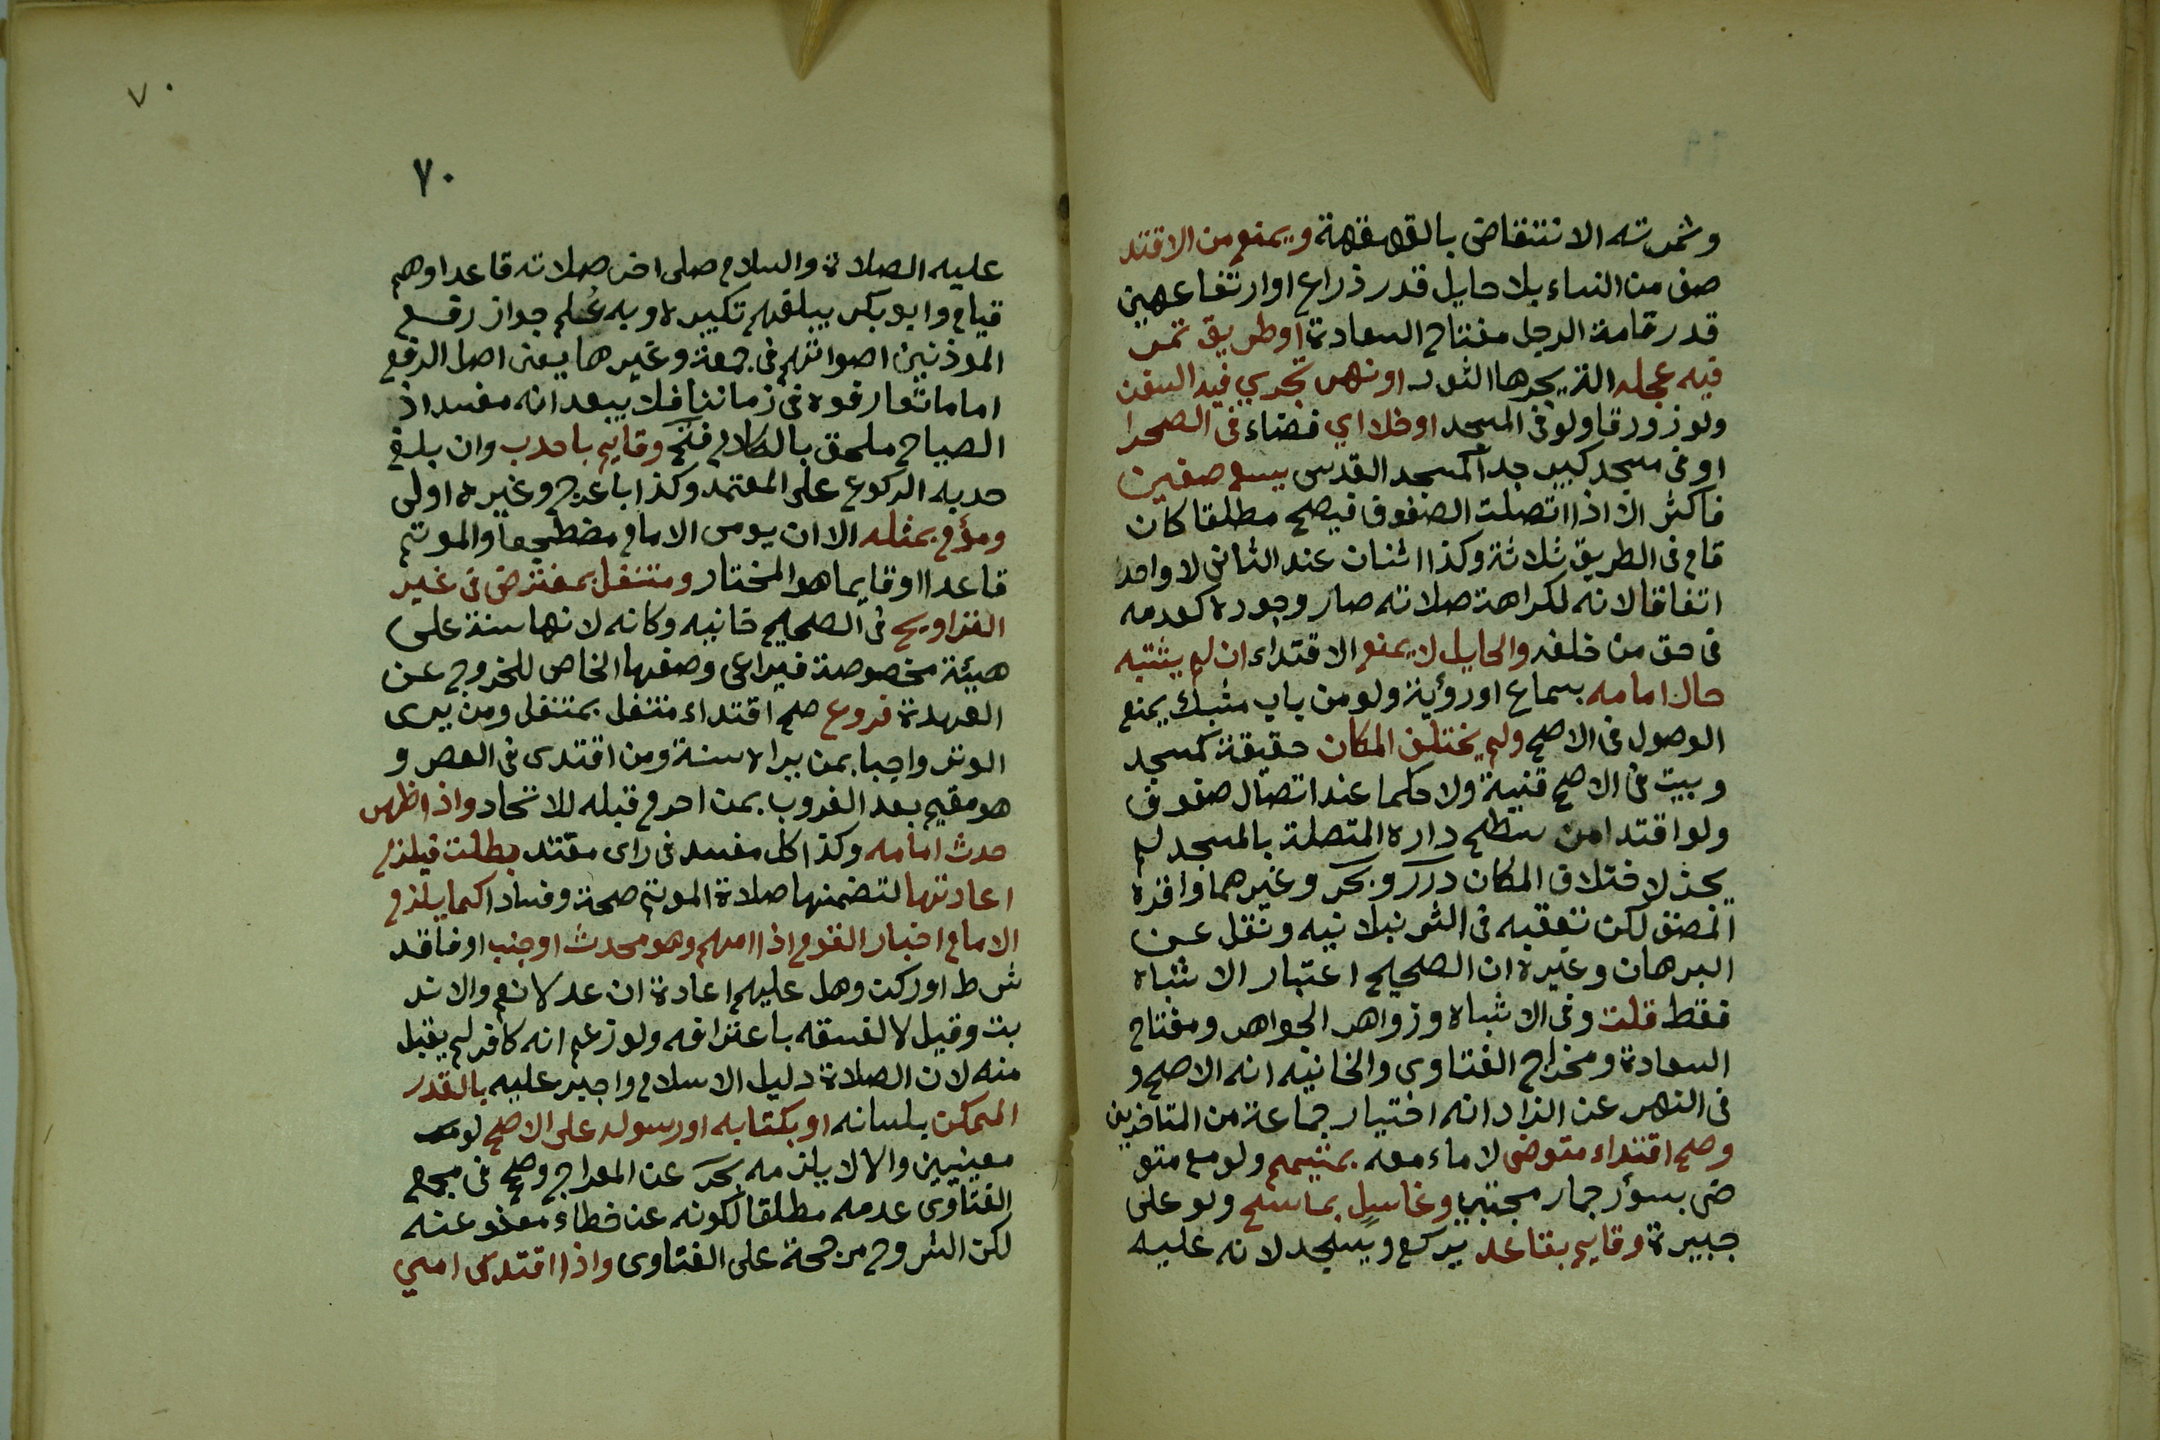 وثمرته الانتقاض بالقهقهة ويمنع من الاقتد
صف من النساء بلا حايل قدر ذراع او ارتفاعهن
قدر قامة الرجل مفتاح السعادة او طريق تمر
فيه عجلة التي يجرها الثور او نهر تجري فيه السفن
ولو زورقا ولو فى المسجد او خلا اي فضاء فى الصحرا
او فى مسجد كبير جدا كمسجد القدس يسع صفين
فاكثر الا اذا اتصلت الصفوف فيصح مطلقا كان
قام فى الطريق ثلاثة وكذا اثنان عند الثانى لا واحد
اتفاقا لانه لكراهة صلاته صار وجوده كعدمه
فى حق من خلفه والحايل لا يمنع الاقتداء ان لم يشتبه
حال امامه بسماع او رؤية ولو من باب مشبك يمنع
الوصول فى الاصح ولم يختلف المكان حقيقة كمسجد
وبيت فى الاصح قنية ولا حكما عند اتصال صفوف
ولو اقتدا من سطح داره المتصلة بالمسجد لم
يجز لاختلاف المكان درر وبحر وغيرهما واقره
المصنف لكن تعقبه فى الشرنبلانيه ونقل عن
البرهان وغيره ان الصحيح اعتبار الاشتباه
فقط قلت وفى الاشباه وزواهر الجواهر ومفتاح
السعادة ومخراج الفتاوى والخانيه انه الاصح و
فى النهر عن الزاد انه اختيار جماعة من المتاخرين
وصح اقتداء متوضى لا ماء معه بمتيمم ولو مع متو
ضى بسؤر حمار مجتبى وغاسل بماسح ولو على
جبيرة وقايم بقاعد يركع ويسجد لانه عليه
٧٠
٧٠
عليه الصلاة والسلام صلى اخر صلاته قاعدا وهم
قيام وابو بكر يبلغهم تكبيره وبه عُلم جواز رفع
الموذنين اصواتهم فى جمعة وغيرها يعنى اصل الرفع
اما ما تعارفوه فى زماننا فلا يبعد انه مفسد اذ
الصياح ملحق بالكلام فتح وقايم باحدب وان بلغ
حدبه الركوع على المعتمد وكذا باعرج وغيره اولى
ومؤم بمثله الا ان يومى الامام مضطجعا والموتم
قاعدا او قايما هو المختار ومتنفل بمفترض فى غير
التراويح فى الصحيح خانيه وكانه لانها سنة على
هيئة مخصوصة فيراعى وصفها الخاص للخروج عن
العهدة فروع صح اقتداء متنفل بمتنفل ومن يرى
الوتر واجبا بمن يراه سنة ومن اقتدى فى العصر و
هو مقيم بعد الغروب بمن احرم قبله للاتحاد واذا ظهر
حدث امامه وكذا كل مفسد فى راى مقتد بطلت فيلزم
اعادتها لتضمنها صلاة الموتم صحة وفسادا كما يلزم
الامام اخبار القوم اذا امهم وهو محدث او جنب او فاقد
شرط او ركن وهل عليهم اعادة ان عدلا نعم والا ند
بت وقيل لا لفسقه باعترافه ولو زعم انه كافر لم يقبل
منه لان الصلاة دليل الاسلام واجبر عليه بالقدر
الممكن بلسانه او بكتابه او رسوله على الاصح لو
معينين والا لا يلزمه بحر عن المعراج وصح فى مجمع
الفتاوى عدمه مطلقا لكونه عن خطاء معفو عنه
لكن الشروح مرجحة على الفتاوى واذا اقتدى امي